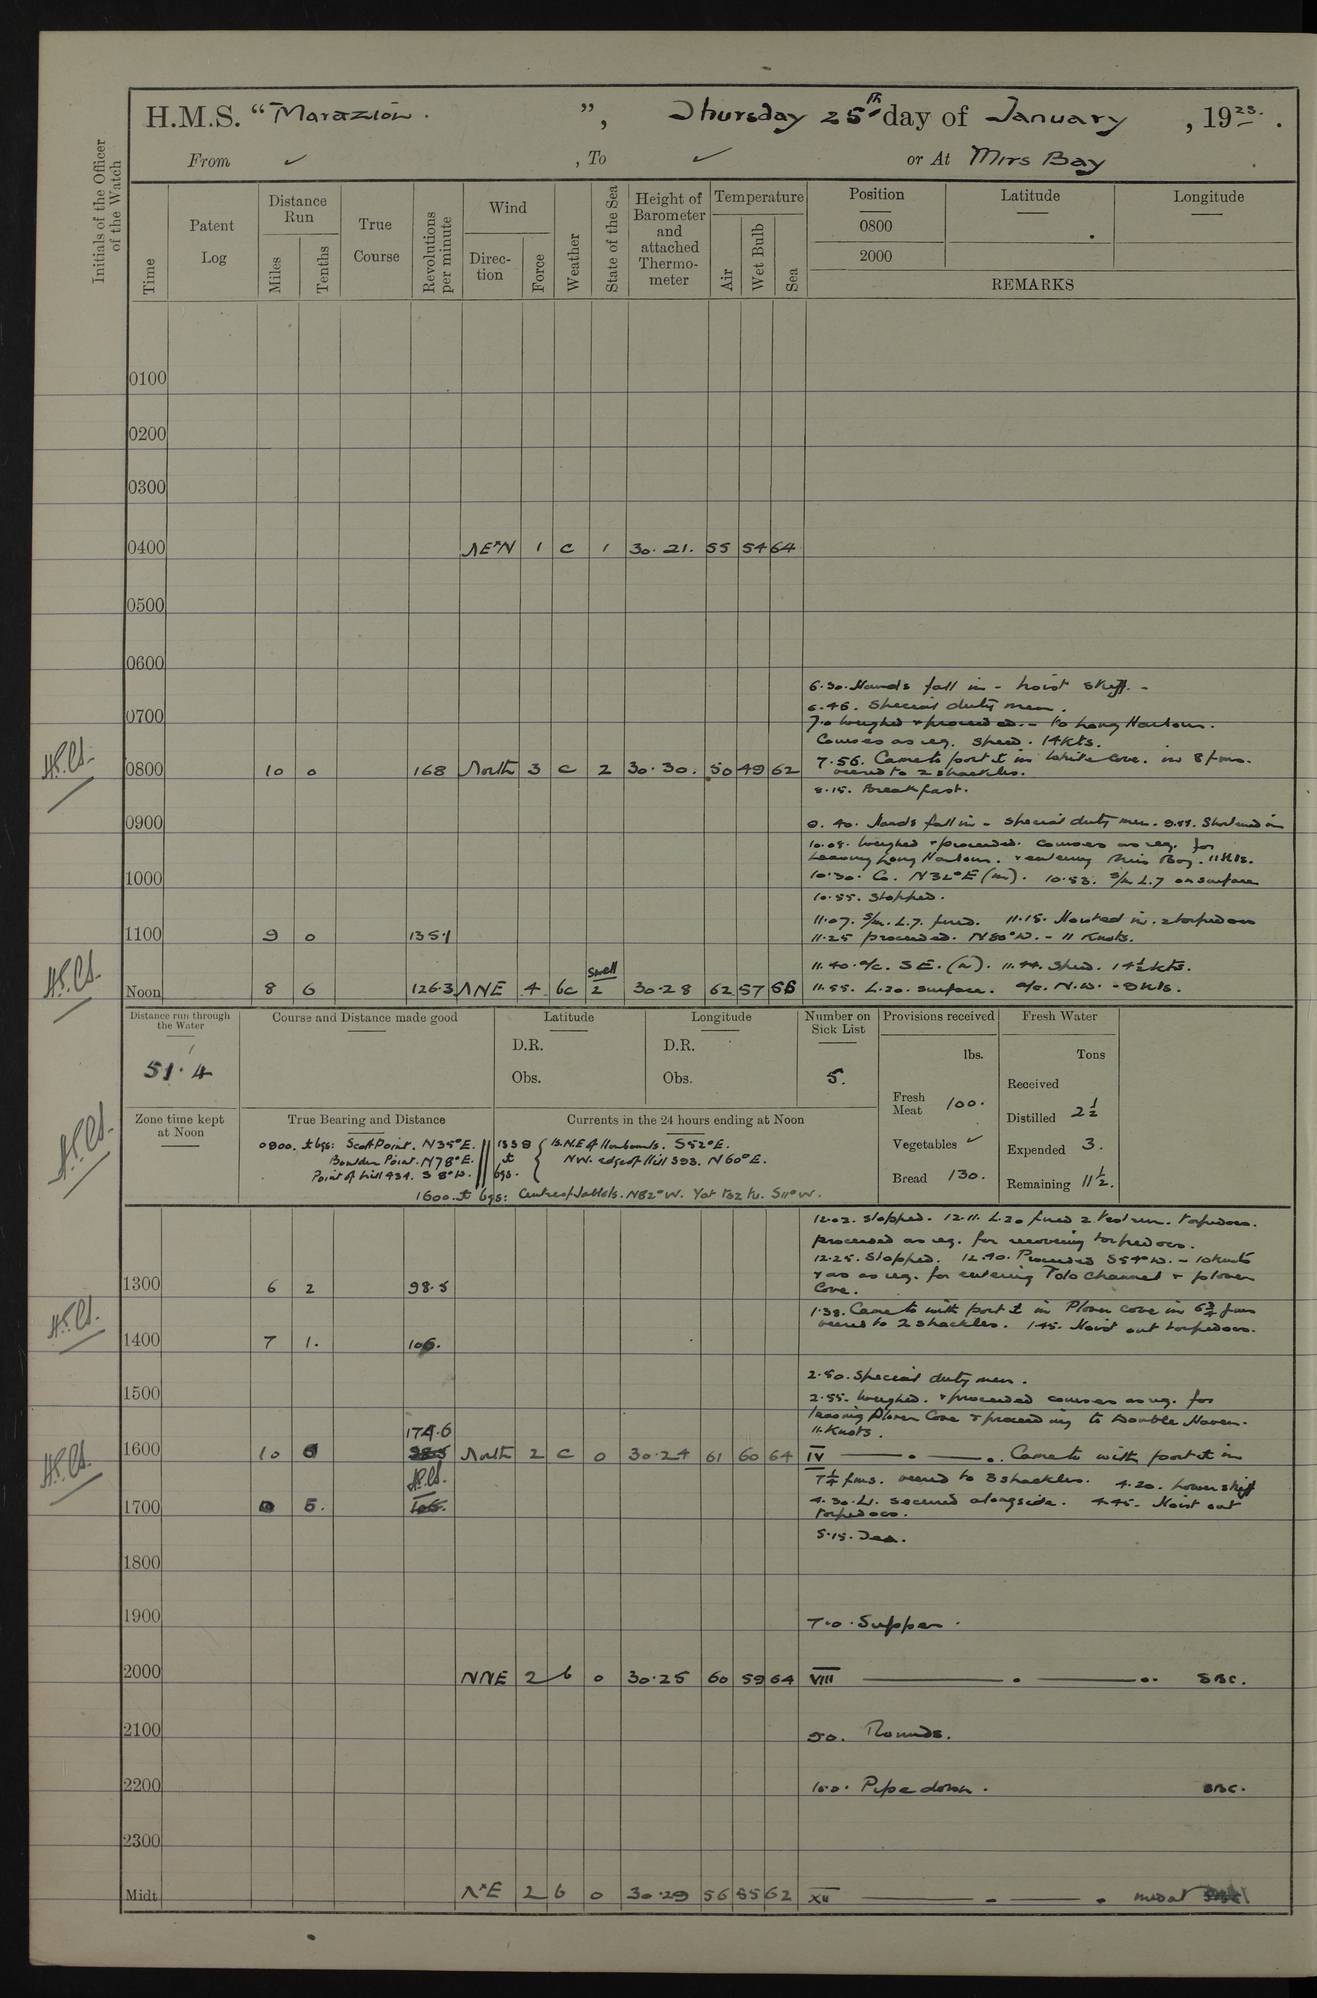 H.M.S. "Marazion.", Thursday 25th day of January, 1923.
From ✓, To ✓ or At Mirs Bay
Initials of the Officer of the Watch
Time
Patent Log
Distance Run
Miles
Tenths
True Course
Revolutions per minute
Wind
Direction
Force
Weather
State of the Sea
Height of Barometer and attached Thermometer
Temperature
Air
Wet Bulb
Sea
Position
Latitude
Longitude
0800
2000
REMARKS
0100
0200
0300
0400 NE×N 1 c 1 30.21. 55 54 64
0500
0600
6.30. Hands fall in - hoist skiff. -
6.45. Special duty men.
0700
7.0 Weighed & proceeded. - to Long Harbour.
Courses as req. speed. 14 Kts.
0800 10 0 168 North 3 c 2 30.30. 50 49 62
7.56. Came to port ⚓ in White Cove. in 8 fms.
veered to 2 shackles.
8.15. Breakfast.
0900
9.40. Hands fall in - Special duty men. Shortened in
10.08. Weighed & proceeded. Courses as req. for
leaving Long Harbour. & entering Mirs Bay. 11 Kts.
1000
10.30. Co. N32°E (m). 10.53. S/m L.7 on surface
10.55. Stopped.
11.07. S/m. L.7. fired. 11.15. Hoisted in. 2 torpedoes
1100 9 0 135.1
11.25 proceeded. N80°W. - 11 Knots.
11.40. a/c. SE. (m). 11.44. Speed. 14½ kts.
Noon 8 6 126.3 NNE 4 bc Swell 2 30.28 62 57
11.55. L.20. surface. a/c. N.W. - 8 Kts.
Distance run through the Water
51.4
Course and Distance made good
Latitude
D.R.
Obs.
Longitude
D.R.
Obs.
Number on Sick List
5.
Provisions received
lbs.
Fresh Meat 100.
Vegetables ✓
Bread 130.
Fresh Water
Tons
Received
Distilled 2½
Expended 3.
Remaining 11½.
Zone time kept at Noon
True Bearing and Distance
Currents in the 24 hours ending at Noon
0800. ⚓ bgs: Scott Point. N35°E.
Boulder Point. N78°E.
Point of hill 434. S 8°W.
1338 ⚓ bgs.
S52°E.
NW. edge of Hill 393. N60°E.
1600. ⚓ bgs: N82°W. S11°W.
12.02. Stopped. 12.11. L.20 fired 2 torpedoes.
proceeded as req. for recovering torpedoes.
12.25. Stopped. 12.40. Proceeded S54°W. - 10 Knots
1300 6 2 98.5
& as req. for entering Tolo Channel & Plover
Cove.
1.38. Came to with port ⚓ in Plover Cove in 6¾ fms
veered to 2 shackles. 1.45. Hoist out torpedoes.
1400 7 1. 106.
2.50. Special duty men.
1500
2.55. Weighed. & proceeded courses as req. for
leaving Plover Cove & proceeding to Double Haven.
11 Knots.
174.6
1600 10 0 98.5 North 2 c 0 30.24 61 60 64
IV Came to with port ⚓ in
7¼ fms. veered to 3 shackles. 4.20. Lower skiff
1700 0 5. 106.
secured alongside. 4.45. Hoist out
torpedoes.
5.15. Tea.
1800
1900
7.0. Supper.
2000 NNE 2 b 0 30.25 60 59 64 VIII SBC.
2100
9.0. Rounds.
2200
10.0. Pipe down. SBC.
2300
Midt N×E 2 b 0 30.29 56 55 62 XII